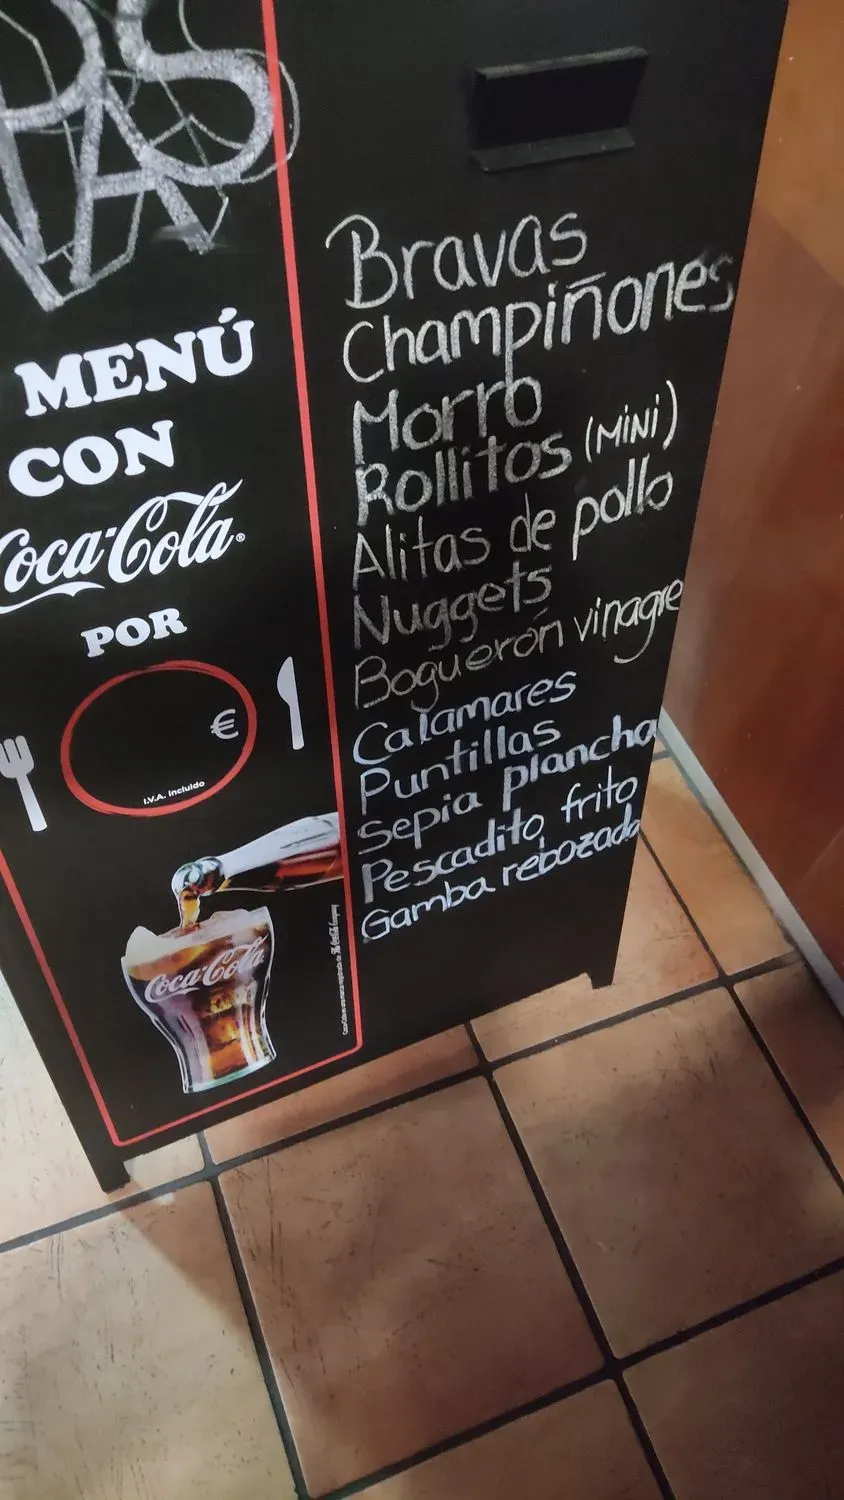 MENÚ
CON
Coca-Cola
POR
€
I.V.A. incluido
Coca-Cola
Bravas
Champiñones
Morro
Rollitos (MiNi)
Alitas de pollo
Nuggets
Boguerón vinagre
Calamares
Puntillas
Sepia plancha
Pescadito frito
Gamba rebozada